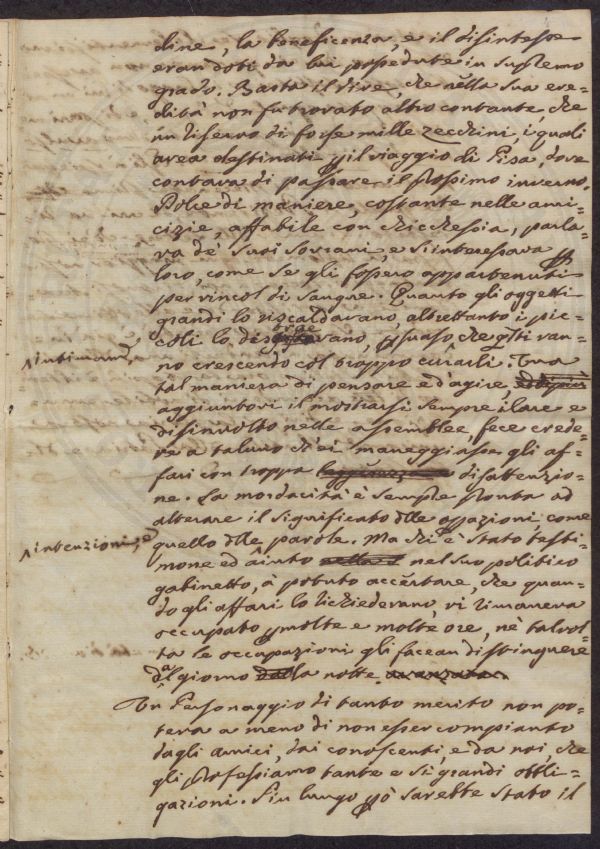 dine, la beneficenza, e il disinteresse
eran doti da lui possedute in supremo
grado. Basta il dire, che nella sua ere-
dità non fu trovato altro contante, che
un riserva di forse mille zecchini, i quali
avea destinati p il viaggio di Pisa, dove
contava di passare il prossimo inverno.
Dolce di maniere, costante nelle ami-
cizie, affabile con chicchessia, parla-
va de' suoi sovrani, e s'interessava p
loro, come se gli fossero appartenuti
per vincol di sangue. Quanto gli oggetti
grandi lo riscaldavano, altrettanto i pic-
coli lo disgustavano, psuaso, che gsti van-
no crescendo col troppo curarli. Una
tal maniera di pensare e d'agire,
aggiuntovi il mostrarsi sempre ilare e
disinvolto nelle assemblee, fece crede-
re a taluno ch'ei maneggiasse gli af-
fari con troppa disattenzio-
ne. La mordacità è sempre pronta ad
alterare il significato dlle opazioni, come
quello dlle parole. Ma chi è stato testi-
mone ed aiuto nel suo politico
gabinetto, à potuto accertare, che quan-
do gli affari lo richiedevano, vi rimaneva
occupato p molte e molte ore, nè talvol-
ta le occupazioni gli facean distinguere
dal giorno la notte
Un Personaggio di tanto merito non po-
teva a meno di non esser compianto
dagli amici, dai conoscenti, e da noi, che
gli professiamo tante e sì grandi obbli-
gazioni. Più lungo pò sarebbe stato il
intimand
intenzioni, e